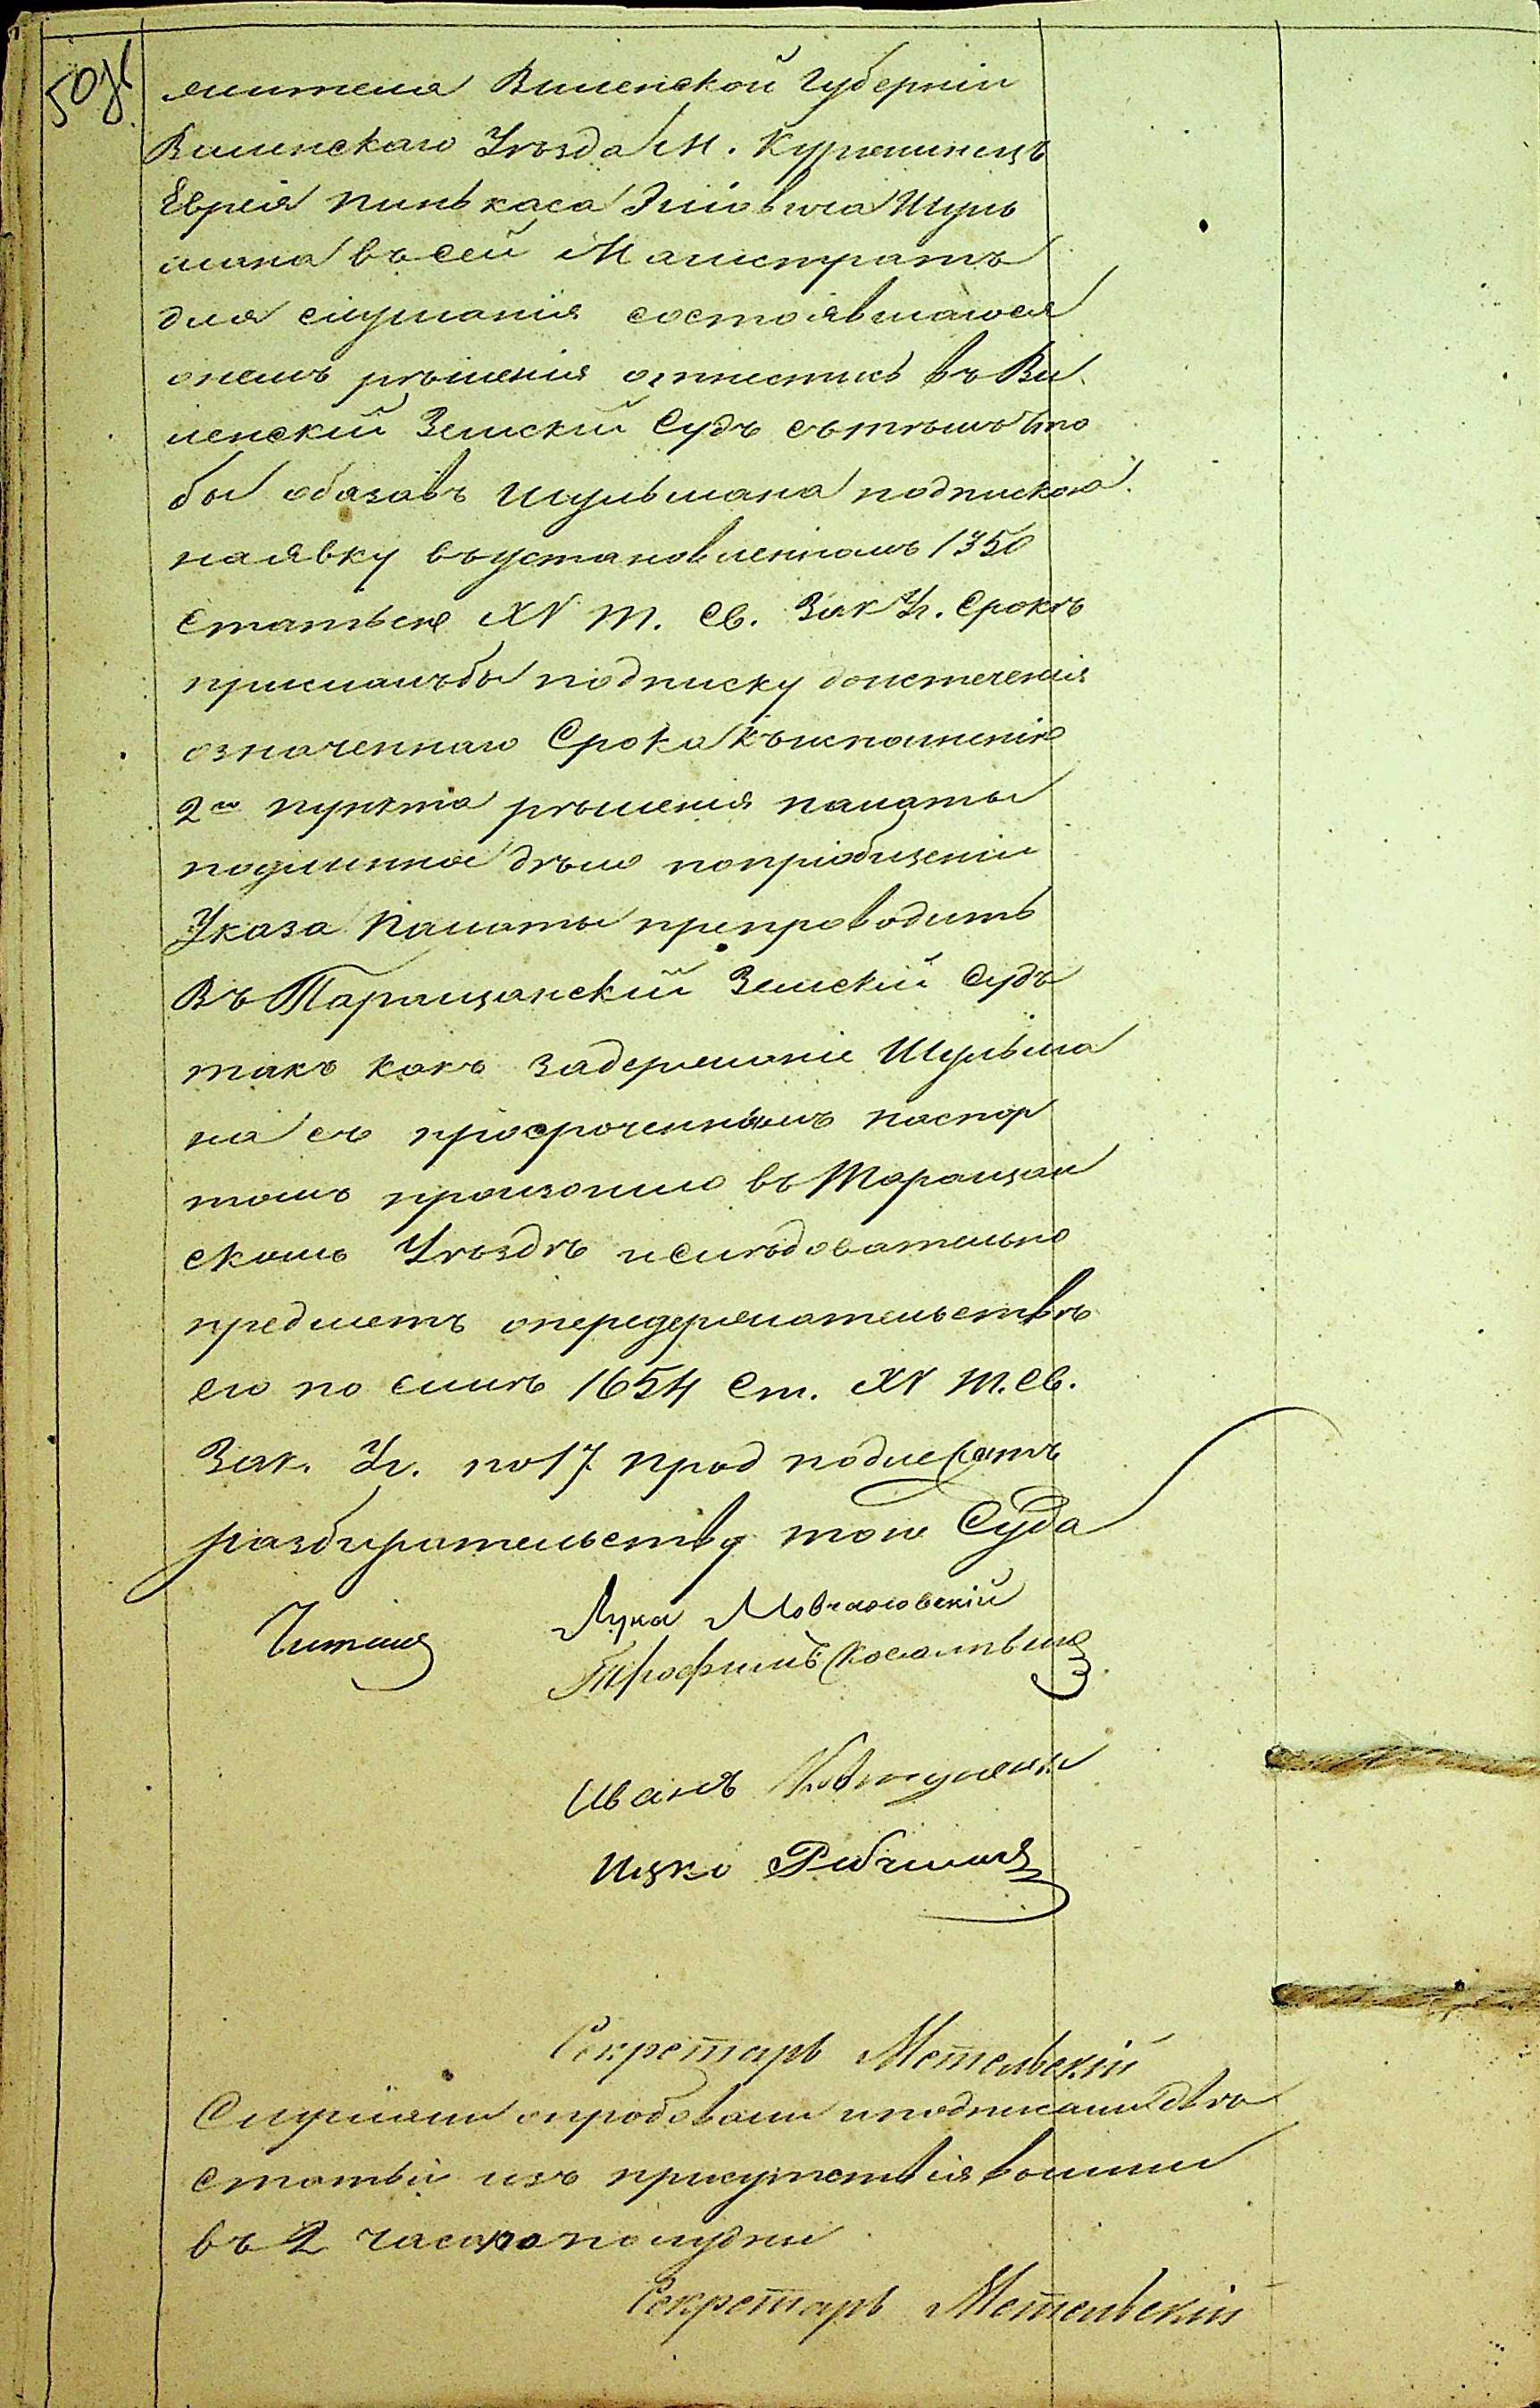 жителя Виленской Губерніи
Виленскаго Уѣзда М. Куренинецъ
Еврея Пинькаса Эліовича Шуль
мана въ сей Магистратъ
для слушанія состоявшагося
о немъ рѣшенія отнестись въ Ви
ленскій Земскій Судъ съ тѣмъ что
бы обязавъ Шульмана подпискою
на явку въ установленномъ 1350
Статьею XV Т. Св. Зак. Уг. Срокѣ
прислалъ бы подписку до истеченія
означеннаго Срока къ исполненію
2го пункта рѣшенія палаты
подлинное дѣло по пріобщеніи
Указа Палаты препроводить
Въ Таращанскій Земскій Судъ
такъ какъ задержаніе Шульма
на съ просроченнымъ паспор
томъ произошло въ Таращан
скомъ Уѣздѣ и слѣдовательно
предметъ о передержательствѣ
его по силѣ 1654 Ст. XV Т. Св.
Зак. Уг. по 17 прод подлежатъ
разбирательству того Суда
Читалъ
Лука
Трофимъ
Иванъ
Ицко
Секретарь Метельскій
Слушали опробовали и подписали двѣ
статьи изъ присутствія вышли
въ 2 часа по полудни
Секретарь Метельскій
50об